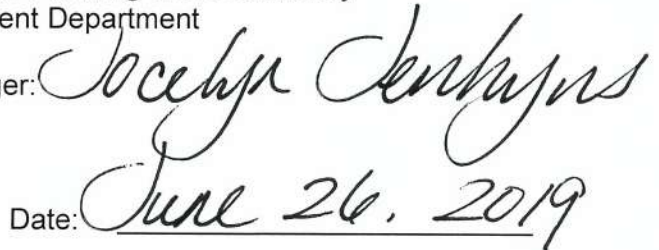 ent Department
ger: Jocelyn Jenkyns
Date: June 26, 2019